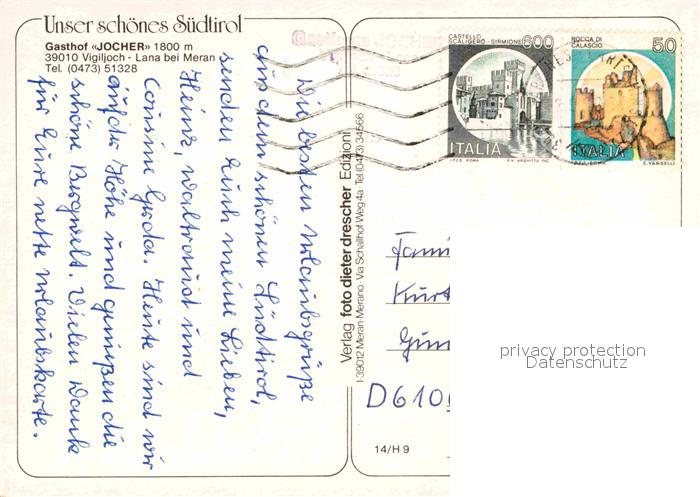 Unser schönes Südtirol
Gasthof «JOCHER» 1800 m
39010 Vigiljoch - Lana bei Meran
Tel. (0473) 51328
Die besten Urlaubsgrüße
aus dem schönen Südtirol,
senden Euch meine Lieben,
Heinz, Waltraud und
Cousine Gerda. Heute sind wir
auf der Höhe und genießen die
schöne Bergwelt. Vielen Dank
für Eure nette Urlaubskarte.
Verlag foto dieter drescher Edizioni
I-39012 Meran Merano · Via Schallhof Weg 4a · Tel (0473) 34566
CASTELLO
SCALIGERO - SIRMIONE
600
ITALIA
I.P.Z.S. ROMA
ROCCA DI
CALASCIO
50
ITALIA
I.P.Z.S. ROMA
E. VANGELLI
Fami
Kurt
D610
14/H 9
privacy protection
Datenschutz